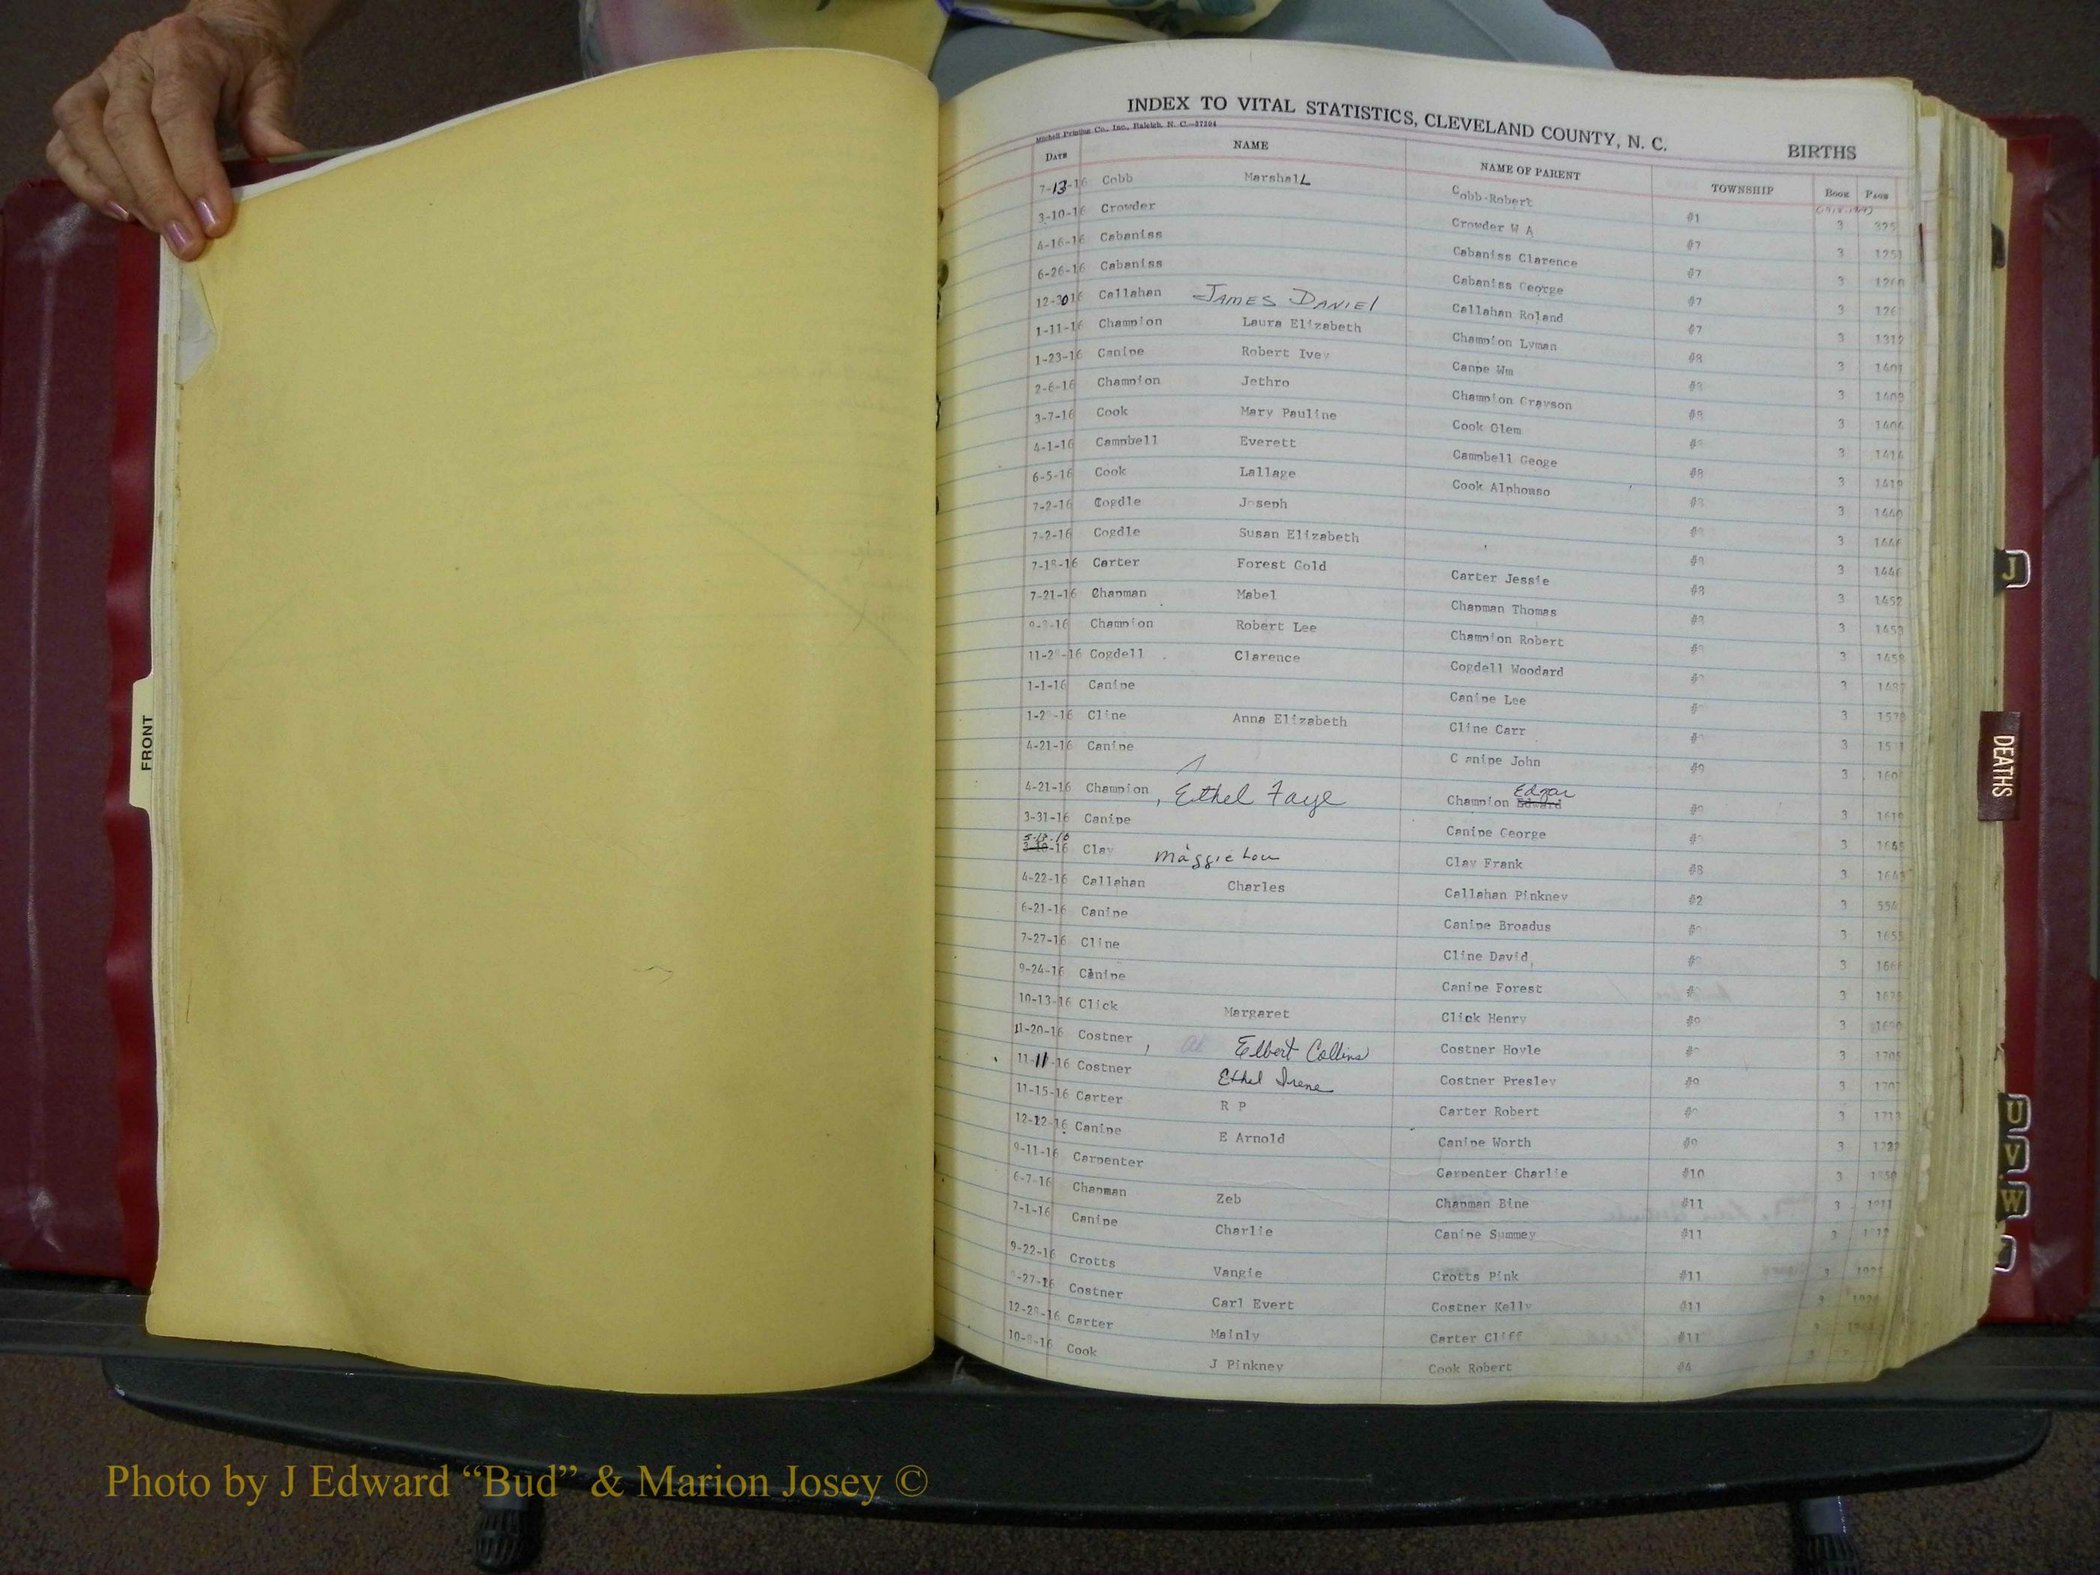 INDEX TO VITAL STATISTICS, CLEVELAND COUNTY, N. C.
BIRTHS
Mitchell Printing Co., Inc., Raleigh, N. C.—37294
DATE NAME NAME OF PARENT TOWNSHIP BOOK PAGE
7-13-16 Cobb Marshall Cobb Robert #1 3 325
3-10-16 Crowder Crowder W A #7 3 1251
4-16-16 Cabaniss Cabaniss Clarence #7 3
6-26-16 Cabaniss Cabaniss George #7 3
12-30-16 Callahan JAMES DANIEL Callahan Roland #7 3 1312
1-11-16 Champion Laura Elizabeth Champion Lyman #8 3 1401
1-23-16 Canipe Robert Ivey Canpe Wm 3
2-6-16 Champion Jethro Champion Grayson #8 3
3-7-16 Cook Mary Pauline Cook Olem 3
4-1-16 Campbell Everett Campbell Geoge #8 3
6-5-16 Cook Lallage Cook Alphonso 3
7-2-16 Cogdle Joseph 3
7-2-16 Cogdle Susan Elizabeth 3
7-18-16 Carter Forest Gold Carter Jessie #8 3 1452
7-21-16 Chapman Mabel Chapman Thomas 3 1453
Champion Robert Lee Champion Robert 3
Cogdell Clarence Cogdell Woodard 3
1-1-16 Canipe Canipe Lee 3
Cline Anna Elizabeth Cline Carr 3
4-21-16 Canipe C anipe John #9 3
4-21-16 Champion, Ethel Faye Champion Edward Edgar 3
3-31-16 Canipe Canipe George 3
3-10-16 Clay Maggie Lou Clay Frank #8 3
4-22-16 Callahan Charles Callahan Pinkney #2 3 554
6-21-16 Canipe Canipe Broadus 3
7-27-16 Cline Cline David 3
9-24-16 Canipe Canipe Forest 3
10-13-16 Click Margaret Click Henry #9 3
11-20-16 Costner, Elbert Collins Costner Hoyle 3
11-11-16 Costner Ethel Irene Costner Presley #9 3
11-15-16 Carter R P Carter Robert 3
12-12-16 Canipe E Arnold Canipe Worth #9 3
9-11-16 Carpenter Carpenter Charlie #10 3
6-7-16 Chapman Zeb Chapman Bine #11 3 1911
7-1-16 Canipe Charlie Canipe Summey #11 3
9-22-16 Crotts Vangie Crotts Pink #11 3
Costner Carl Evert Costner Kelly #11 3
12-28-16 Carter Mainly Carter Cliff #11
10-8-16 Cook J Pinkney Cook Robert #4
FRONT
J
DEATHS
U
V
W
Photo by J Edward “Bud” & Marion Josey ©